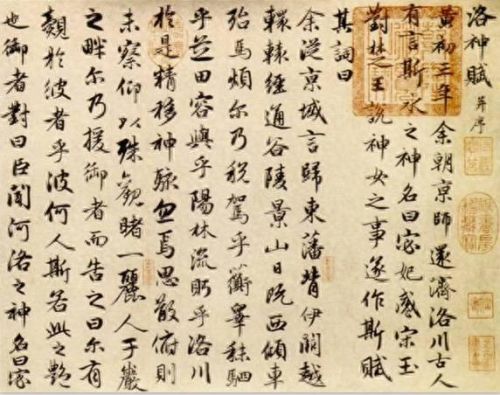 洛神賦 并序
黄初三年余朝京師還濟洛川古人
有言斯水之神名曰宓妃感宋玉
對楚王說神女之事遂作斯賦
其詞曰
余從京域言歸東藩背伊闕越
轘轅經通谷陵景山日既西傾車
殆馬煩尔乃稅駕乎蘅皋秣駟
乎芝田容與乎陽林流眄乎洛川
於是精移神駭忽焉思散俯則
未察仰以殊觀睹一麗人于巖
之畔尔乃援御者而告之曰尔有
覿於彼者乎彼何人斯若此之艷
也御者對曰臣聞河洛之神名曰宓